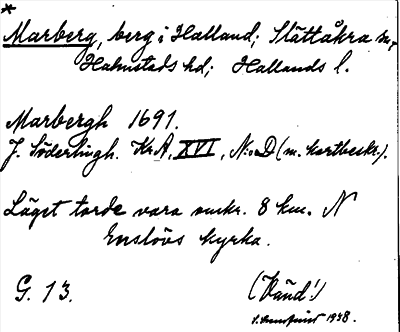 *
Marberg, berg i Halland; Slättåkra sn,
Halmstads hd; Hallands l.
Marbergh 1691.
J. Söderlingh. Kr.A. XVI, N:o D (m. kartbeskr.).
Läget torde vara omkr. 8 km. N
Enslövs kyrka.
G. 13.
(Vänd!)
1948.